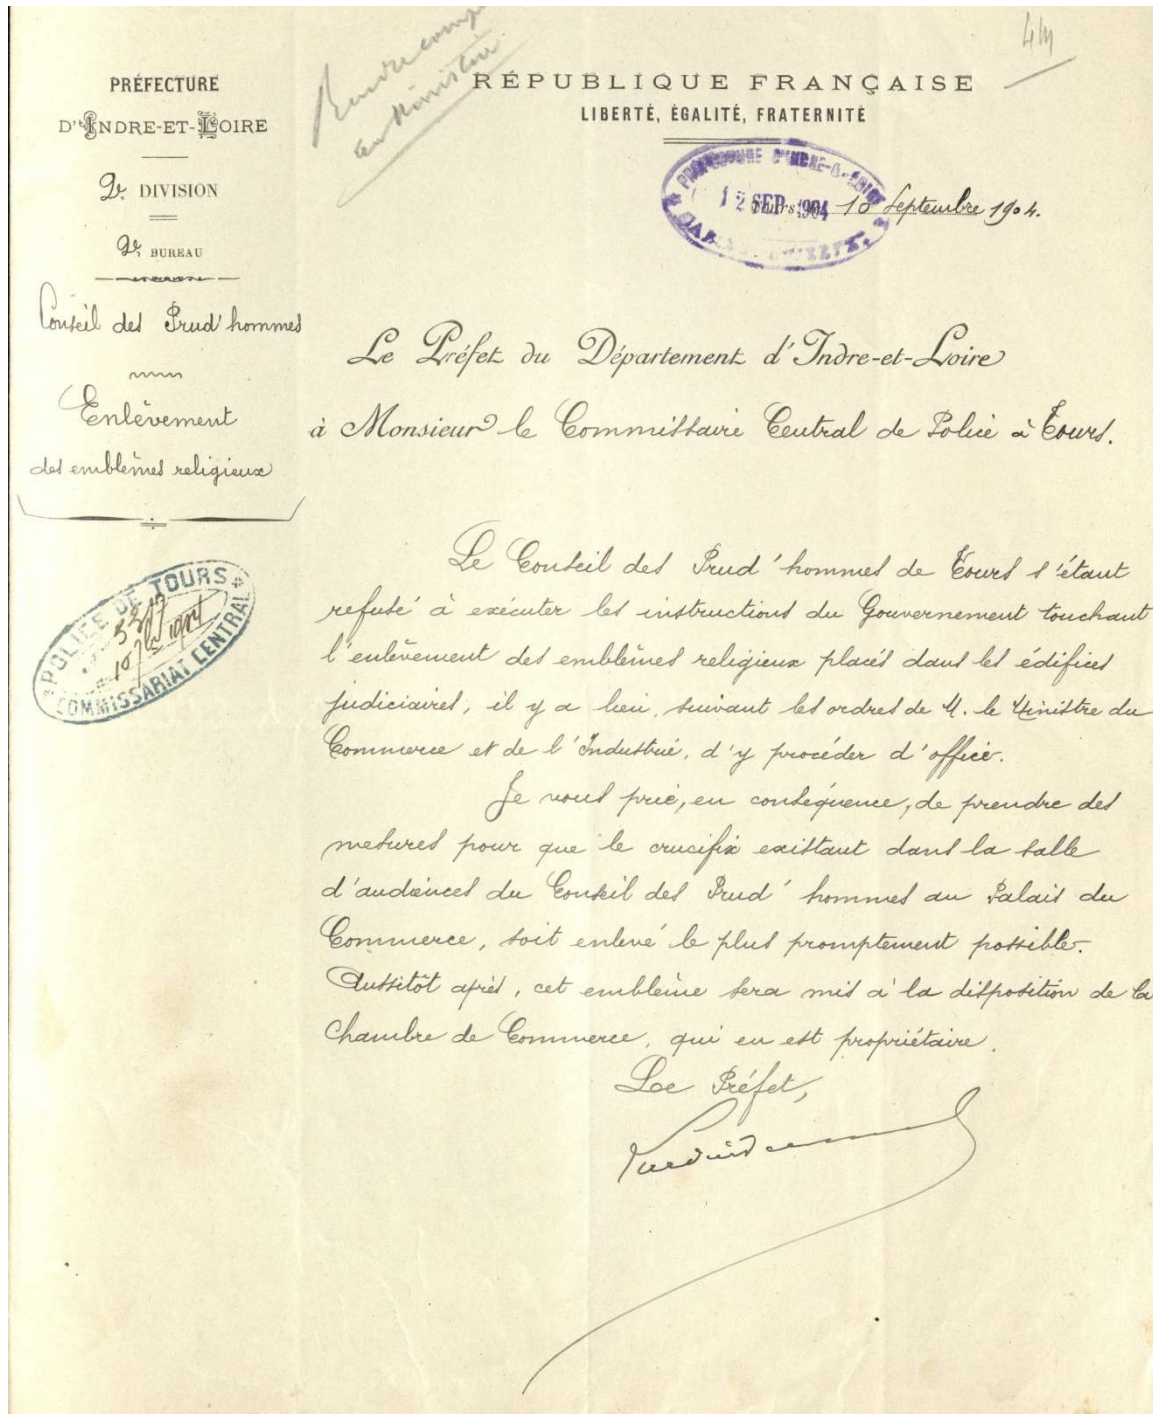 Rendre compte
au Ministre
4M
PRÉFECTURE
D'INDRE-ET-LOIRE
2e DIVISION
2e BUREAU
Conseil des Prud'hommes
Enlèvement
des emblèmes religieux
RÉPUBLIQUE FRANÇAISE
LIBERTÉ, ÉGALITÉ, FRATERNITÉ
PRÉFECTURE D'INDRE-&-LOIRE
12 SEP 1904
Tours, 10 Septembre 1904.
Le Préfet du Département d'Indre-et-Loire
à Monsieur le Commissaire Central de Police à Tours.
POLICE DE TOURS
5317
10 7bre 1904
COMMISSARIAT CENTRAL
Le Conseil des Prud'hommes de Tours s'étant
refusé à exécuter les instructions du Gouvernement touchant
l'enlèvement des emblèmes religieux placés dans les édifices
judiciaires, il y a lieu, suivant les ordres de M. le Ministre du
Commerce et de l'Industrie, d'y procéder d'office.
Je vous prie, en conséquence, de prendre des
mesures pour que le crucifix existant dans la salle
d'audiences du Conseil des Prud'hommes au Palais du
Commerce, soit enlevé le plus promptement possible.
Aussitôt après, cet emblème sera mis à la disposition de la
Chambre de Commerce, qui en est propriétaire.
Le Préfet,